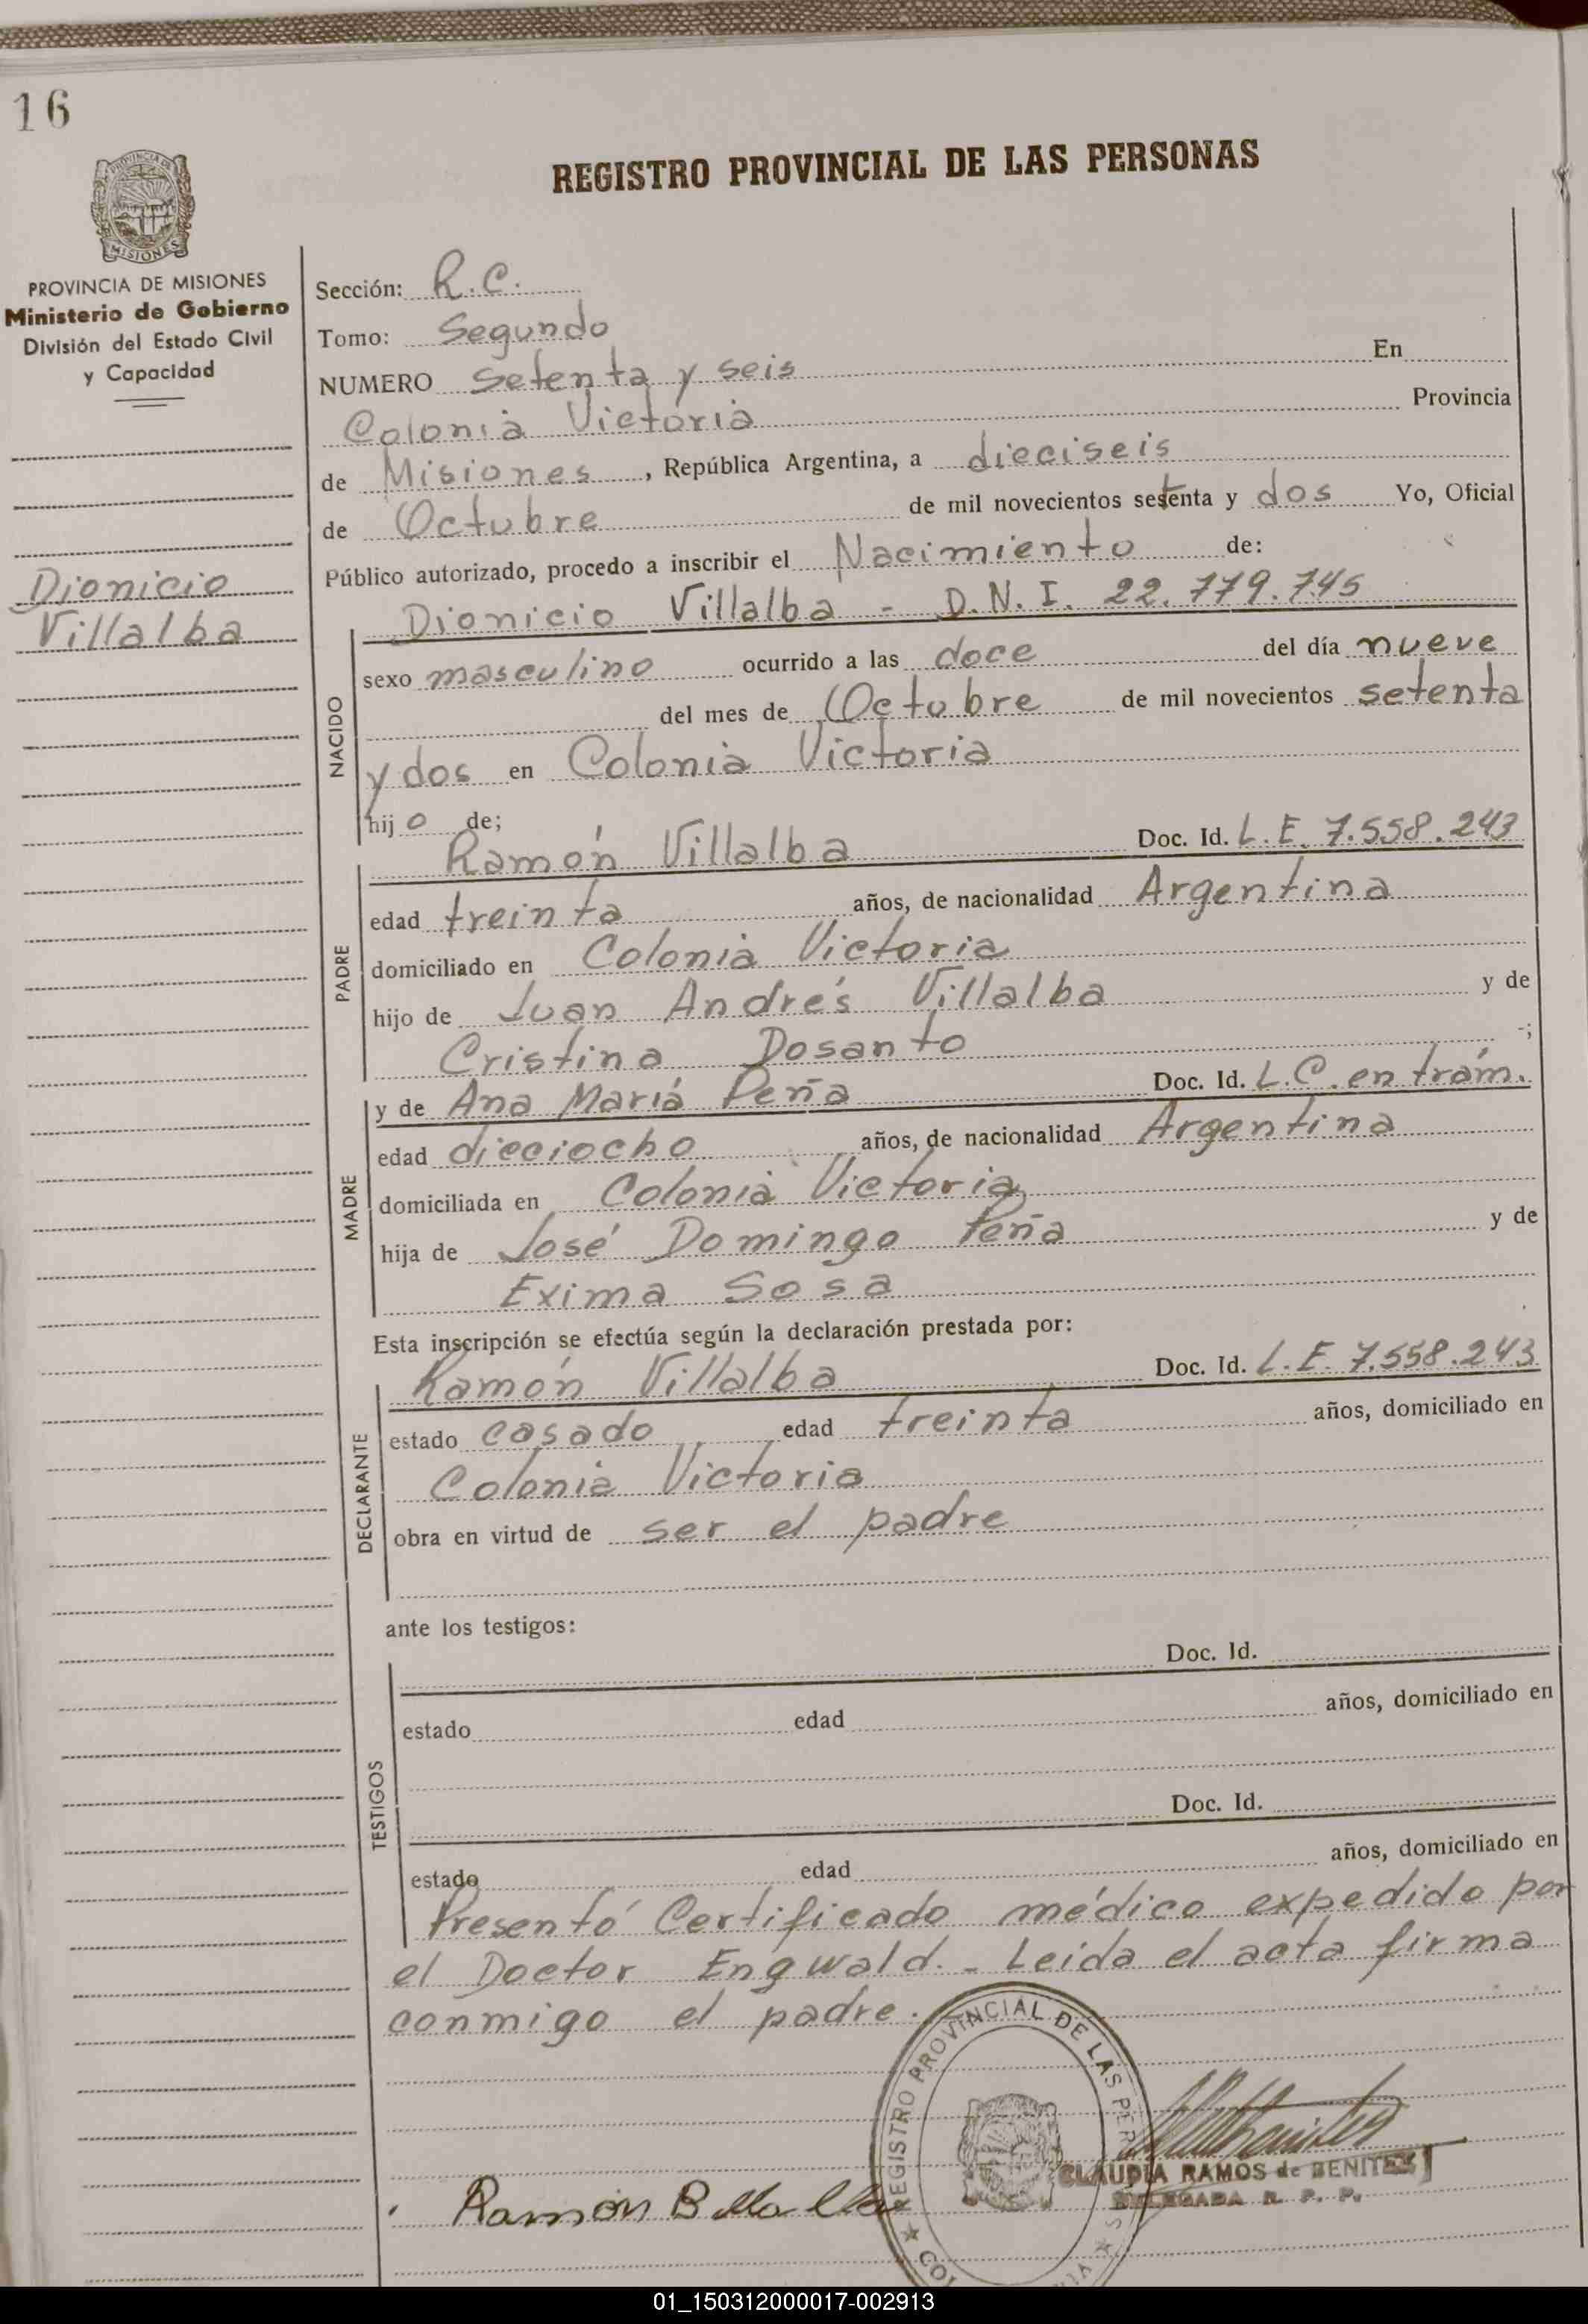 16
REGISTRO PROVINCIAL DE LAS PERSONAS
PROVINCIA DE
MISIONES
PROVINCIA DE MISIONES
Ministerio de Gobierno
División del Estado Civil
y Capacidad
Dionicio
Villalba
Sección: R.C.
Tomo: Segundo
NUMERO Setenta y seis En
Colonia Victoria Provincia
de Misiones, República Argentina, a dieciseis
de Octubre de mil novecientos setenta y dos Yo, Oficial
Público autorizado, procedo a inscribir el Nacimiento de:
Dionicio Villalba - D.N.I. 22.779.745
NACIDO
sexo masculino ocurrido a las doce del día nueve
del mes de Octubre de mil novecientos setenta
y dos en Colonia Victoria
hijo de;
Ramón Villalba Doc. Id. L.E. 7.558.243
PADRE
edad treinta años, de nacionalidad Argentina
domiciliado en Colonia Victoria
hijo de Juan Andrés Villalba y de
Cristina Dosanto -;
y de Ana María Peña Doc. Id. L.C. en trám.
MADRE
edad dieciocho años, de nacionalidad Argentina
domiciliada en Colonia Victoria
hija de José Domingo Peña y de
Exima Sosa
Esta inscripción se efectúa según la declaración prestada por:
Ramón Villalba Doc. Id. L.E. 7.558.243
DECLARANTE
estado casado edad treinta años, domiciliado en
Colonia Victoria
obra en virtud de ser el padre
ante los testigos:
Doc. Id.
TESTIGOS
estado edad años, domiciliado en
Doc. Id.
estado edad años, domiciliado en
Presentó Certificado médico expedido por
el Doctor Engwald. - Leida el acta firma
conmigo el padre.
REGISTRO PROVINCIAL DE LAS PER
CLAUDIA RAMOS de BENITEZ
DELEGADA R. P. P.
Ramón
01_150312000017-002913